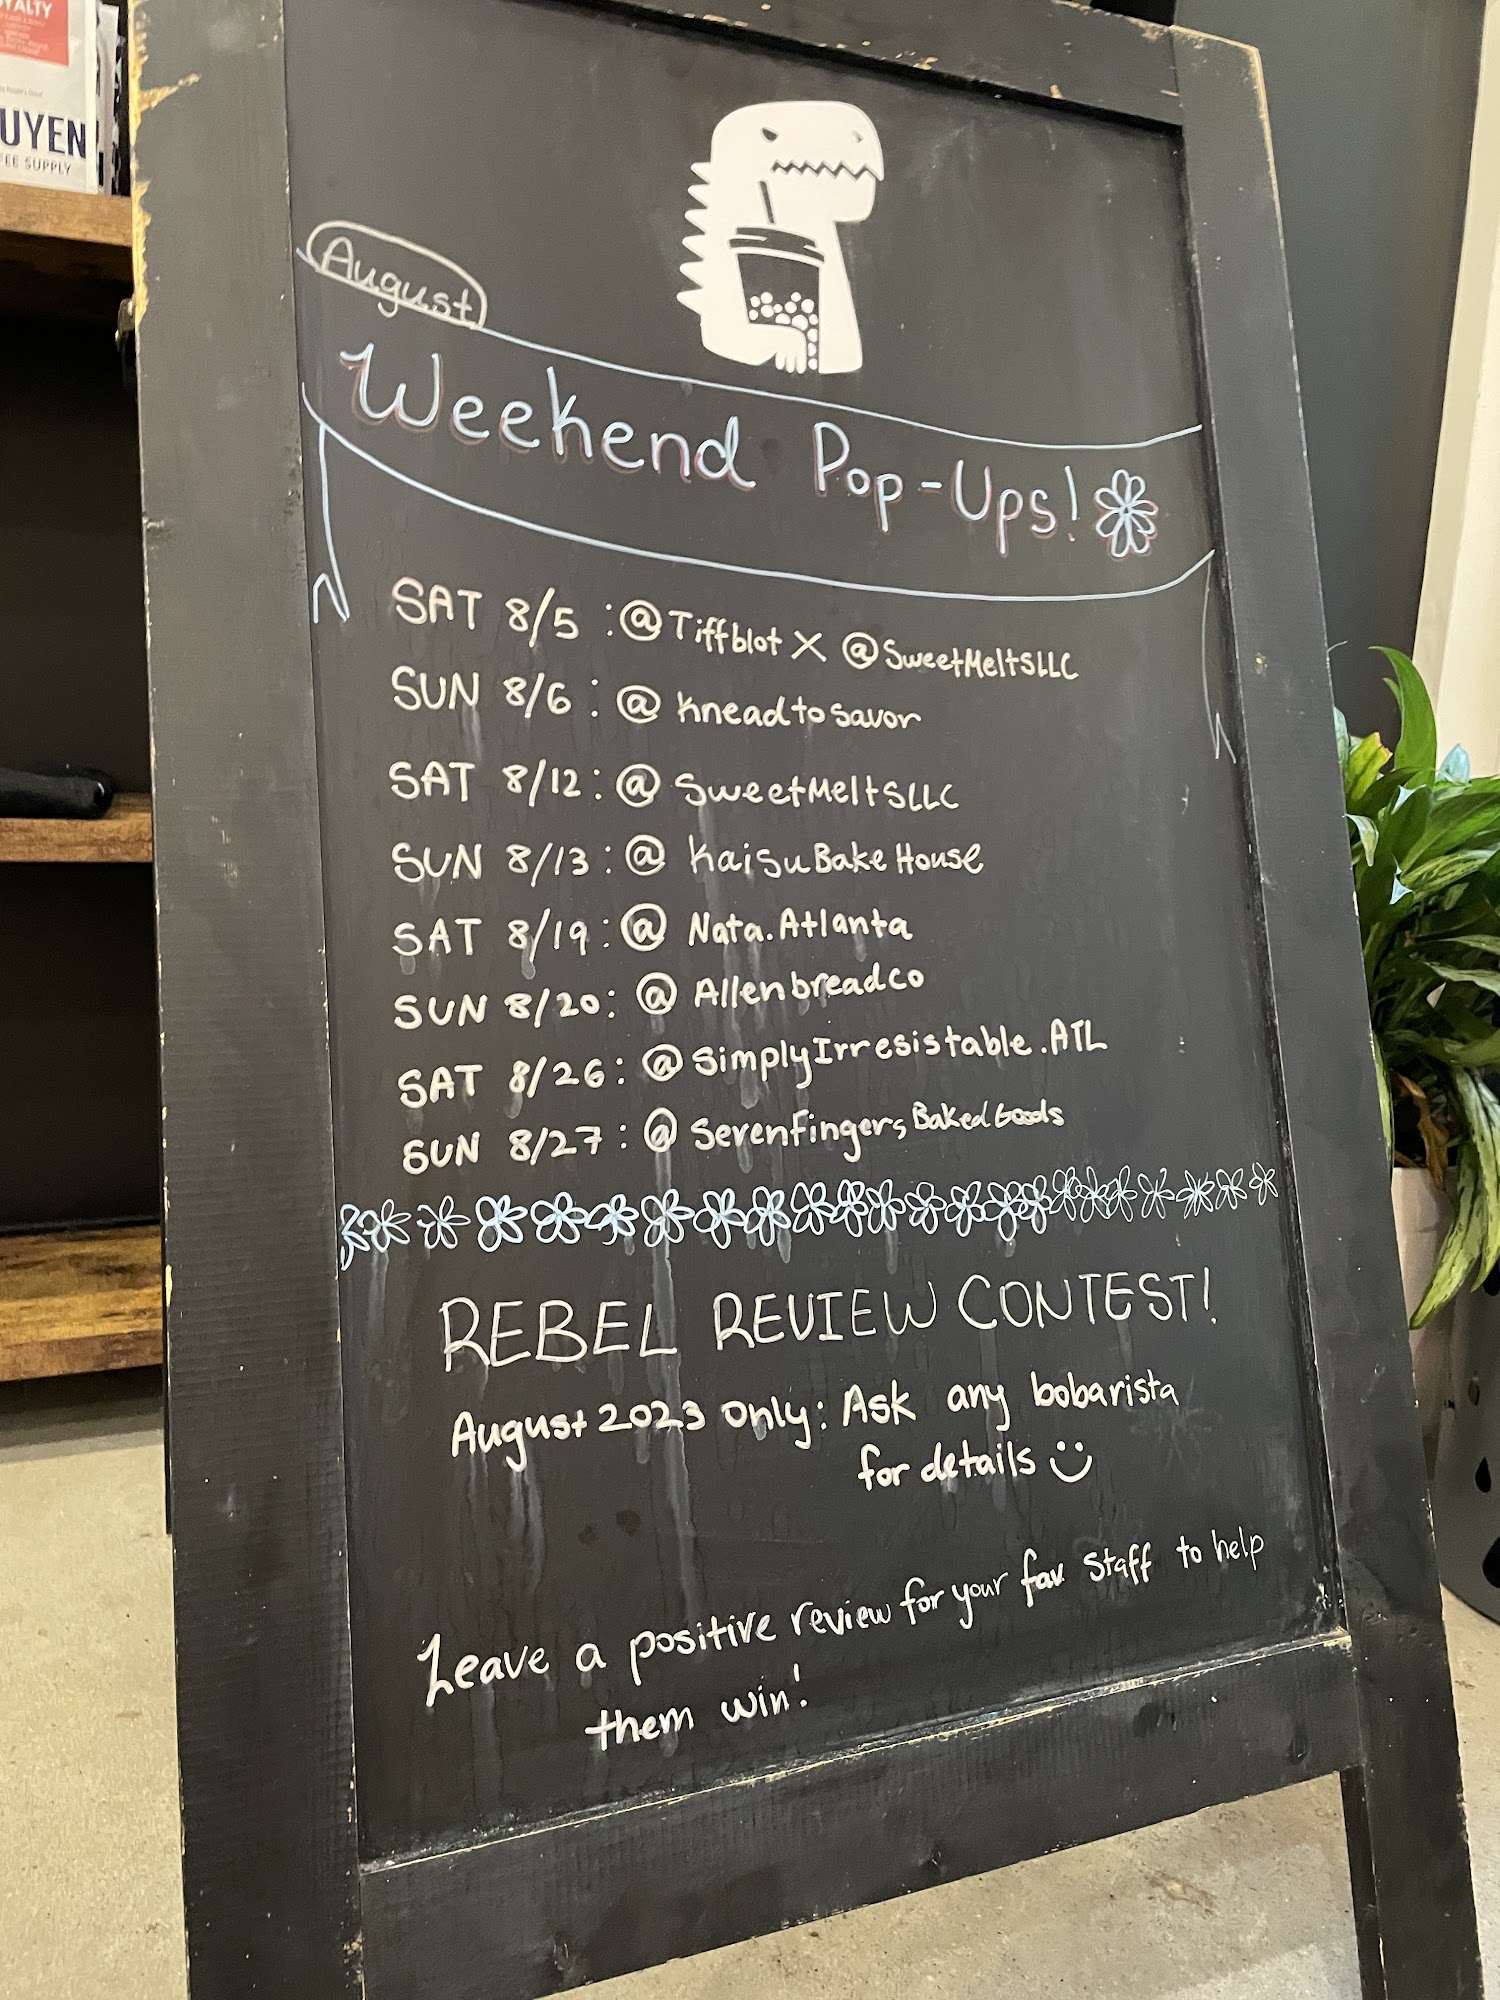 YALTY
UYEN
FEE SUPPLY
August
Weekend Pop-Ups!
SAT 8/5 : @Tiffblot X @SweetMeltSLLC
SUN 8/6 : @ Kneadtosavor
SAT 8/12 : @ SweetMeltSLLC
SUN 8/13 : @ KaisuBakeHouse
SAT 8/19 : @ Nata.Atlanta
SUN 8/20 : @ Allenbreadco
SAT 8/26 : @ SimplyIrresistable.ATL
SUN 8/27 : @ SevenFingersBakedGoods
REBEL REVIEW CONTEST!
August 2023 Only: Ask any bobarista
for details
Leave a positive review for your fav. Staff to help
them win!